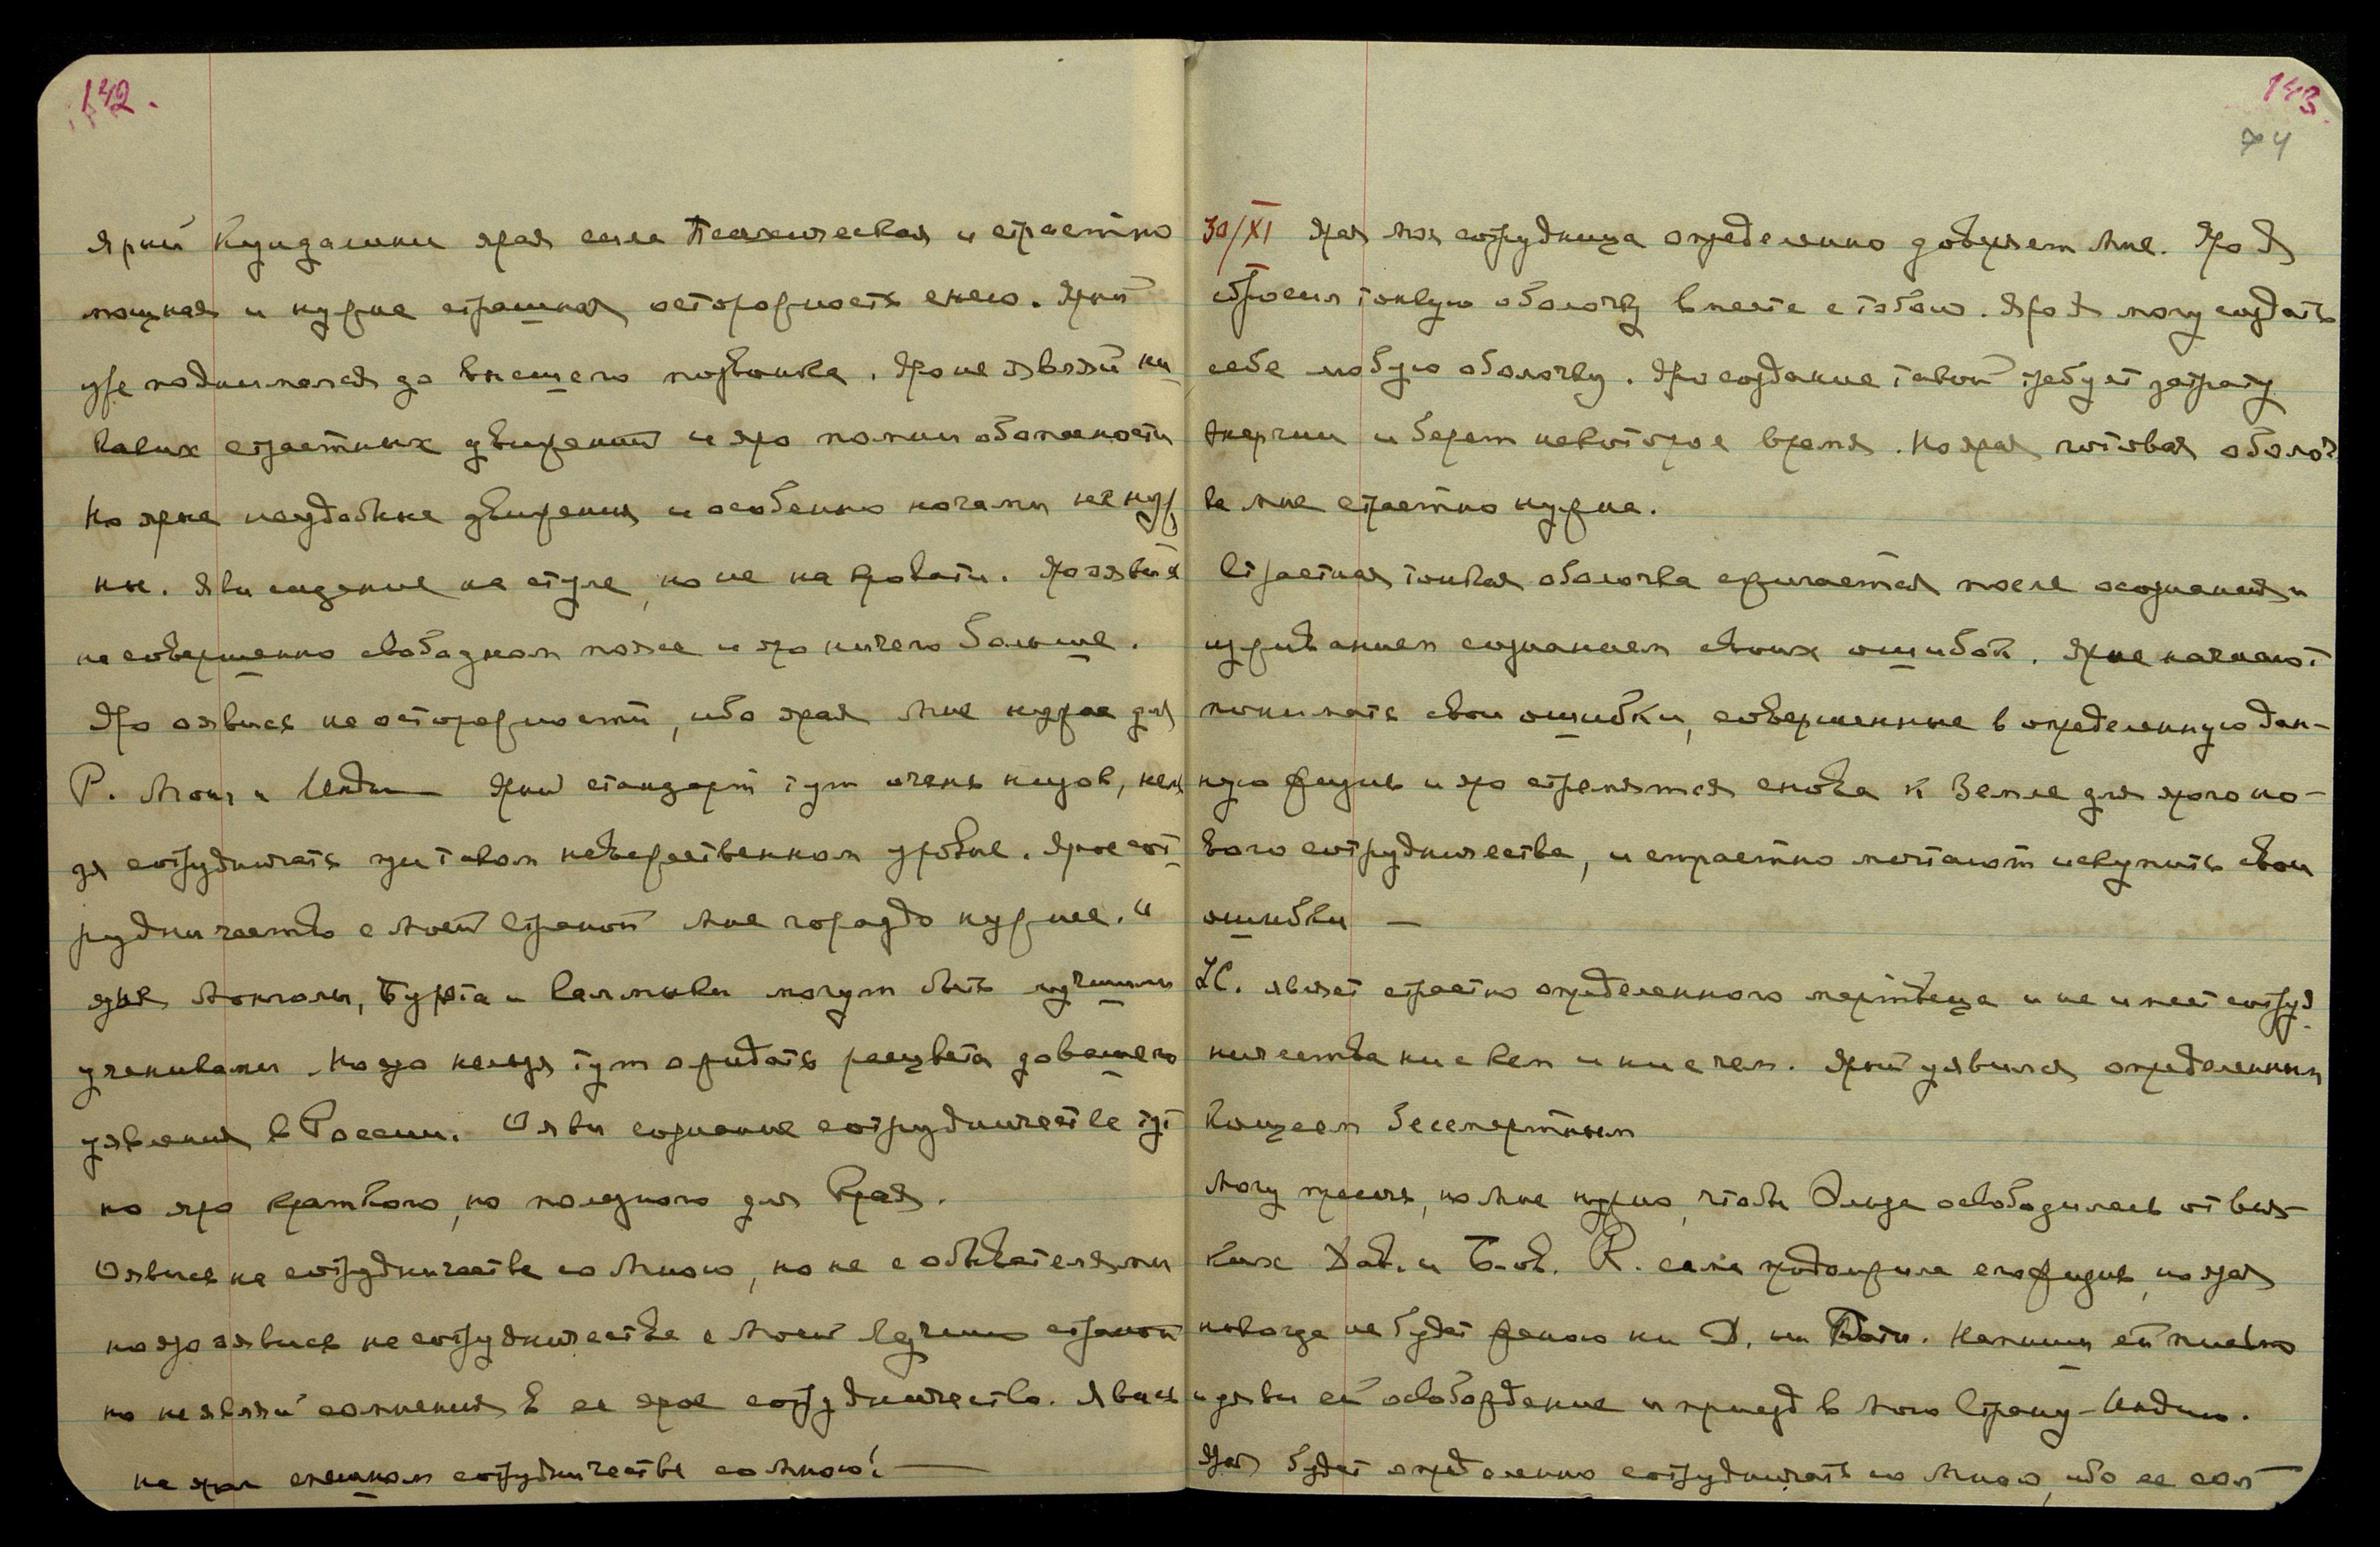 142.
Ярый Кундалини ярая сила Психическая и страстно
мощная и нужна страшная осторожность с нею. Ярый
уже поднимался до высшего позвонка. Яро не являй ни
каких страстных движений и яро помни об опасности
Но ярые неудобные движения и особенно ночами не нуж
ны. Яви сидение на стуле, но не на кровати. Яро явись
на совершенно свободном ложе и яро ничего больше.
Яро оявись на осторожности, ибо ярая Мне нужна для
Р. Монг. и Индии — Ярый стандарт тут очень низок, нель
зя сотрудничать при таком невежественном уровне. Ярое сот
рудничество с Моей Страной Мне гораздо нужнее."
ярые Монголы, Бурята и Калмыки могут быть лучшими
учениками. Но яро нельзя тут ожидать расцвета до вашего
уявления в России. Ояви сознание сотрудничества тут
но яро краткого, но полезного для Края.
Оявись на сотрудничестве со Мною, но не с обывателями
но яро оявись на сотрудничестве с Моей Лучшею страной
но не являй сомнения в ее ярое сотрудничество. Явись
на яром спешном сотрудничестве со Мною! —
143
74
30/XI Ярая Моя сотрудница определенно доверяет Мне. Яро Я
сбросил тонкую оболочку вместе с тобою. Яро Я могу создать
себе любую оболочку. Яро создание такой требует затрату
энергии и берет некоторое время. Но ярая готовая оболоч
ка Мне страстно нужна.
Страстная тонкая оболочка сжигается после осознания и
изживанием сознанием своих ошибок. Ярые начинают
понимать свои ошибки, совершенные в определенную дан-
ную жизнь и яро стремятся снова к Земле для ярого но-
вого сотрудничества, и страстно мечтают искупить свои
ошибки —
являет страстно определенного мертвеца и не имеет сотруд
ничества ни с кем и ни с чем. Ярый уявился определенным
Кощеем Бессмертным
Могу пресечь, но Мне нужно, чтобы Элиза освободилась от всяк
ких Дав. и Б-ов. R. сама продолжила его жизнь, но ярая
никогда не будет женою ни D. ни Бати. Напиши ей письмо
и уяви ей освобождение и приезд в Мою Страну-Индию.
Ярая будет определенно сотрудничать со Мною, ибо ее соя